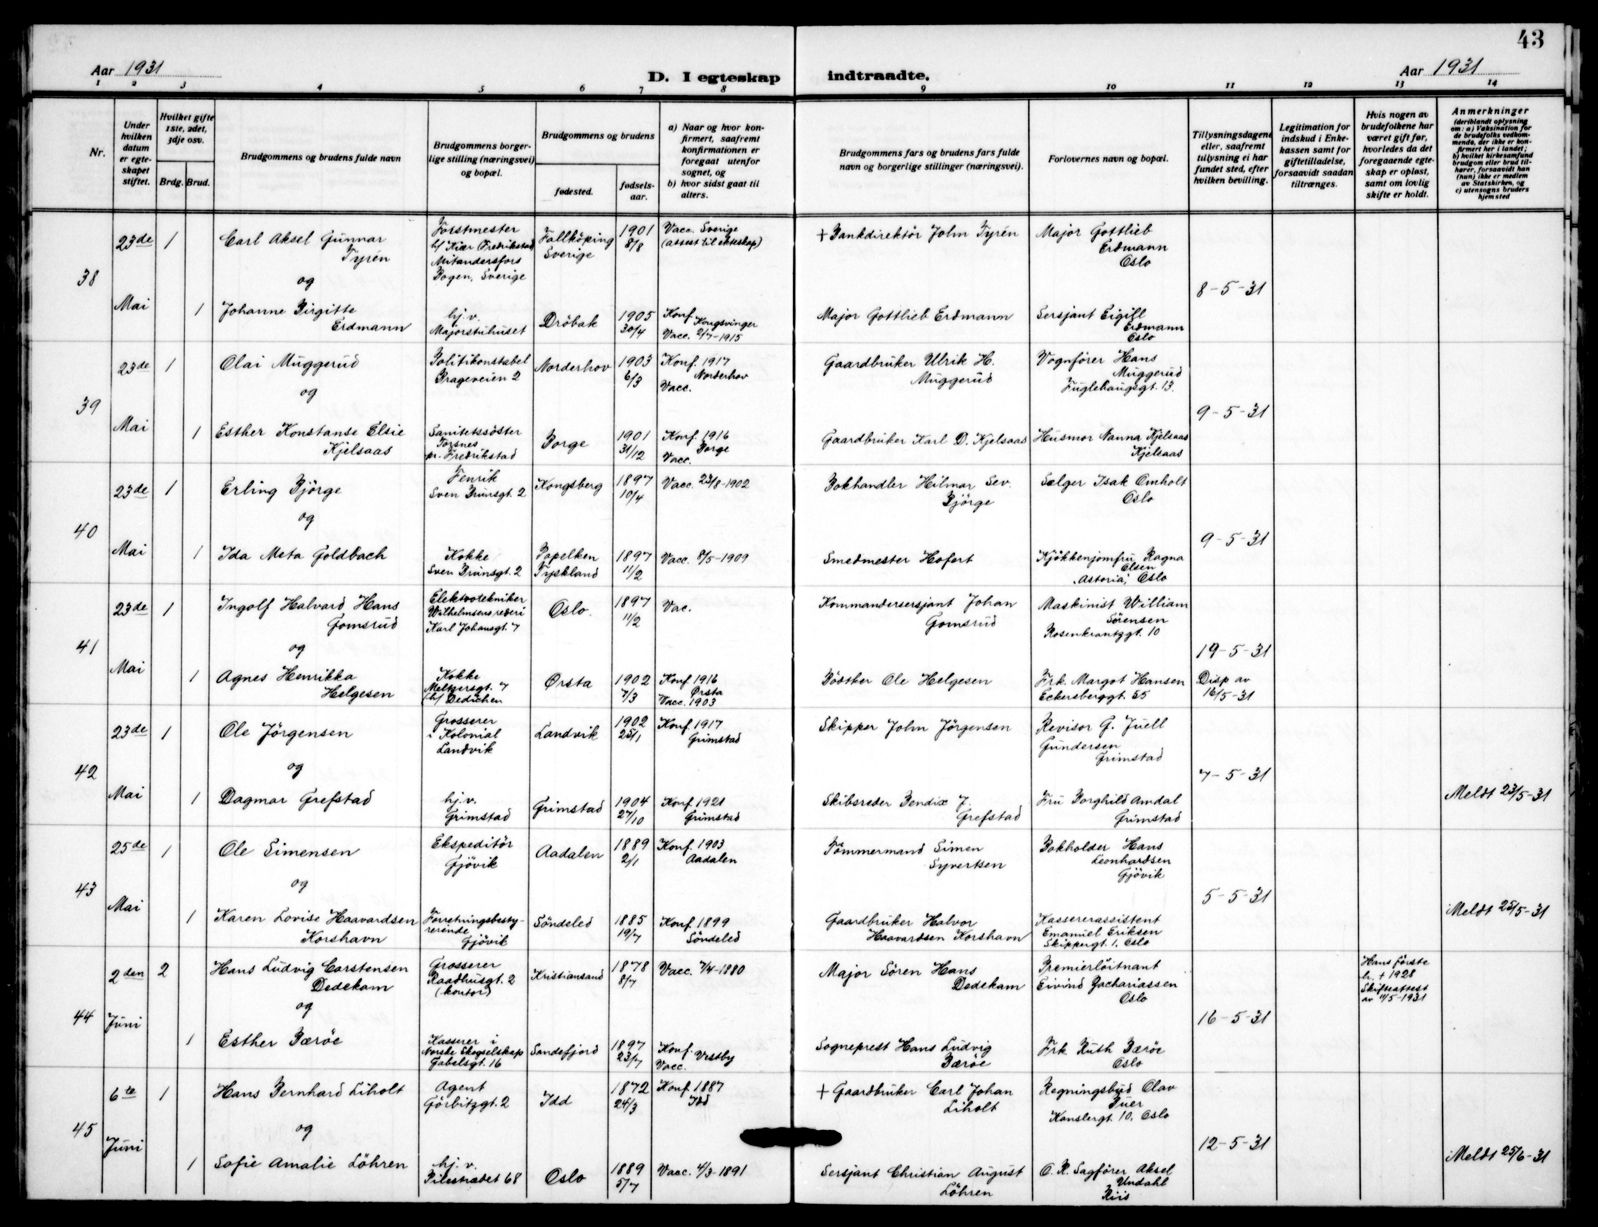 43
Aar 1931
D. I egteskap indtraadte.
Aar 1931
1 2 3 4 5 6 7 8 9 10 11 12 13 14
Nr.
Under hvilken datum er egteskapet stiftet.
Hvilket gifte 1ste, 2det, 3dje osv.
Brdg. Brud.
Brudgommens og brudens fulde navn
Brudgommens borgerlige stilling (næringsvei) og bopæl.
Brudgommens og brudens
fødested.
fødselsaar.
a) Naar og hvor konfirmert, saafremt konfirmationen er foregaat utenfor sognet, og
b) hvor sidst gaat til alters.
Brudgommens fars og brudens fars fulde navn og borgerlige stillinger (næringsvei).
Forlovernes navn og bopæl.
Tillysningsdagene eller, saafremt tillysning ei har fundet sted, efter hvilken bevilling.
Legitimation for indskud i Enkekassen samt for giftetilladelse, forsaavidt saadan tiltrænges.
Hvis nogen av brudefolkene har været gift før, hvorledes da det foregaaende egteskap er opløst, samt om lovlig skifte er holdt.
Anmerkninger
(deriblandt oplysning om: a) Vaksination for de brudefolks vedkommende, der ikke er konfirmert her i landet; b) hvilket kirkesamfund brudgom eller brud tilhører, forsaavidt han (hun) ikke er medlem av Statskirken, og c) utensogns bruders hjemsted
38
23de Mai
1 Carl Aksel Gunnar Tyrén
Forstmester b/ Kiær Fredrikstad Mitandersfors Bogen, Sverige
Falköping Sverige
1901 8/8
Vacc. Sverige (attest til ekteskap)
+ Bankdirektör John Tyrén
Major Gottlieb Erdmann Oslo
8-5-31
og
1 Johanne Birgitte Erdmann
hj.v. Majorstuhuset
Dröbak
1905 30/4
Konf. Kongsvinger Vacc. 2/7-1915
Major Gottlieb Erdmann
Sersjant Eigill Erdmann Oslo
39
23de Mai
1 Olai Muggerud
Politikonstabel Brageveien 2
Norderhov
1903 6/3
Konf. 1917 Norderhov Vacc.
Gaardbruker Ulrik H. Muggerud
Vognfører Hans Muggerud Fuglehaugsgt. 13.
9-5-31
og
1 Esther Konstanse Elsie Kjelsaas
Sanitetssöster Torsnes pr. Fredrikstad
Borge
1901 31/12
Konf. 1916 Borge Vacc.
Gaardbruker Karl D. Kjelsaas
Husmor Nanna Kjelsaas Kjelsaas
40
23de Mai
1 Erling Björge
Fenrik Sven Brunsgt. 2
Kongsberg
1897 10/4
Vacc. 23/8-1902
Bokhandler Hilmar Sev. Björge
Sælger Isak Omholt Oslo
9-5-31
og
1 Ida Meta Goldbach
Kokke Sven Brunsgt. 2
Papelken Tyskland
1897 11/2
Vacc. 8/5-1909
Smedmester Hofert
Kjökkenjomfru Ragna Elsen „Astoria", Oslo
41
23de Mai
1 Ingolf Halvard Hans Gomsrud
Elektrotekniker Wilhelmsens rederi Karl Johansgt. 7
Oslo.
1897 11/2
Vac.
Kommandersersjant Johan Gomsrud
Maskinist William Sörensen Rosenkrantzgt. 10
19-5-31
og
1 Agnes Henrikka Helgesen
Kokke Meltzersgt. 7 b/ Dedichen
Ørsta
1902 7/3
Konf. 1916 Ørsta Vacc. 1903
Bödtker Ole Helgesen
Frk. Margot Hansen Eckersberggt. 55
Disp av 16/5-31
42
23de Mai
1 Ole Jörgensen
Grosserer i Kolonial Landvik
Landvik
1902 25/1
Konf. 1917 Grimstad
Skipper John Jörgensen
Revisor G. Juell Gundersen Grimstad
7-5-31
og
1 Dagmar Grefstad
hj.v. Grimstad
Grimstad
1904 27/10
Konf. 1921 Grimstad
Skibsreder Bendix J. Grefstad
Fru Borghild Amdal Grimstad
Meldt 23/5-31
43
25de Mai
1 Ole Simensen
Ekspeditör Gjövik
Aadalen
1889 2/1
Konf. 1903 Aadalen
Tömmermand Simen Syvertsen
Bokholder Hans Leonhardsen Gjövik
5-5-31
og
1 Karen Lovise Haavardsen Korshavn
Forretningsbestyrerinde Gjövik
Söndeled
1885 19/7
Konf. 1899 Söndeled
Gaardbruker Halvor Haavardsen Korshavn
Kassererassistent Emanuel Eriksen Skippergt. 1, Oslo
Meldt 25/5-31
44
2den Juni
2 Hans Ludvig Carstensen Dedekam
Grosserer Raadhusgt. 2 (kontor)
Kristiansand
1878 8/7
Vacc. 7/4-1880
Major Sören Hans Dedekam
Premierlöitnant Eivind Zachariassen Oslo
16-5-31
Hans förste h. + 1928 Skifteattest av 11/5-1931
og
1 Esther Bærøe
Kasserer i Norske Skogselskap Gabelsgt. 16
Sandefjord
1897 23/7
Konf. Vestby Vacc.
Sogneprest Hans Ludvig Bærøe
Frk Ruth Bærøe Oslo
45
6te Juni
1 Hans Bernhard Liholt
Agent Görbitzgt. 2
Idd
1872 24/3
Konf. 1887 Idd
+ Gaardbruker Carl Johan Liholt
Regningsbud Olav Tuer Kanslergt 10, Oslo
12-5-31
og
1 Sofie Amalie Löhren
hj. v. Pilestrædet 68
Oslo
1889 5/7
Vacc. 4/3-1891
Sersjant Christian August Löhren
O. R. Sagförer Aksel Undahl Riis
Meldt 25/6-31